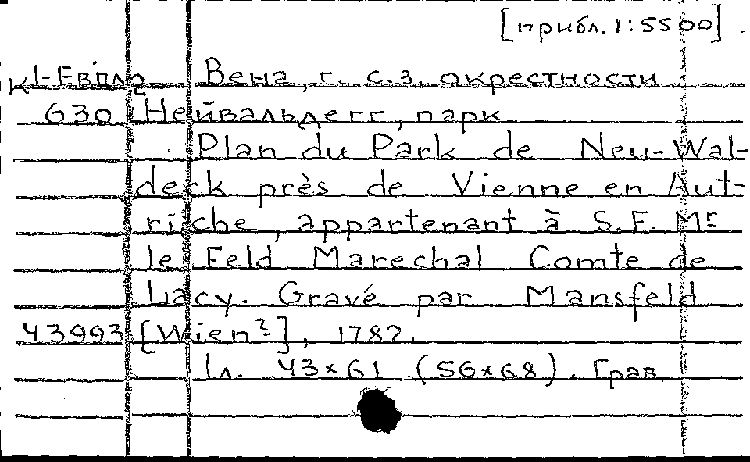 [прибл. 1:5500]
К1-Евплр Вена, г. с.з. окрестности
630 Нейвальдегг, парк
Plan du Park de Neu-Wal-
deck près de Vienne en Aut-
riche, appartenant à S.E. Mr
le Feld Marechal Comte de
Lacy. Gravé par Mansfeld
43993 [Wien?], 1782.
1л. 43×61 (56×68). Грав.